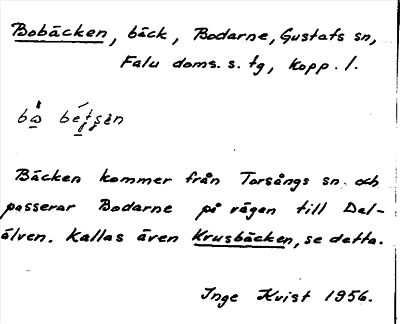 Bobäcken, bäck, Bodarne, Gustafs sn,
Falu doms. s. tg, Kopp. l.
Bäcken kommer från Torsångs sn. och
passerar Bodarne på vägen till Dal-
älven. Kallas även Krusbäcken, se detta.
Inge Kvist 1956.